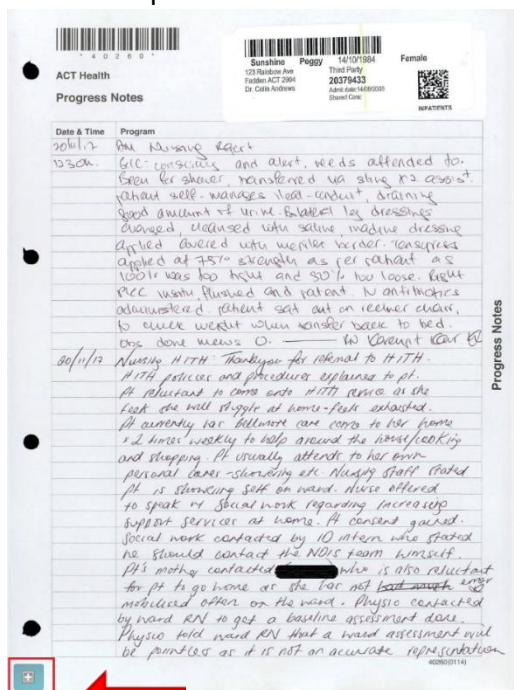 * 40260 *
ACT Health
Progress Notes
Sunshine Peggy 14/10/1984 Female
123 Rainbow Ave Third Party
Fadden ACT 2904 20379433
Dr. Colin Andrews Admit date:14/08/2005
Shared Clinic
INPATIENTS
Date & Time Program
20/11/17 AM Nursing Report
1230h. GCC: conscious and alert, needs attended to.
Been for shower, transferred via sling x2 assist.
patient self-manages ileal-conduit, draining
good amount of urine. Bilateral leg dressings
changed, cleansed with saline, inadine dressing
applied covered with mepilex border. Tensopress
applied at 75% strength as per patient as
100% was too tight and 50% too loose. Right
PICC insitu, flushed and patent. IV antibiotics
administered. patient sat out on recliner chair,
to check weight when transfer back to bed.
obs done mews 0. RN
20/11/17 Nursing HITH: Thankyou for referral to HITH.
HITH policies and procedures explained to pt.
Pt reluctant to come onto HITH service as she
feels she will struggle at home - feels exhausted.
Pt currently has Bellmore care come to her home
x2 times weekly to help around the house/cooking
and shopping. Pt usually attends to her own
personal cares - showering etc. Nursing staff stated
pt is showering self on ward. Nurse offered
to speak w Social work regarding increasing
support services at home. Pt consent gained.
Social work contacted by ID intern who stated
he should contact the NDIS team himself.
Pt's mother contacted who is also reluctant
for pt to go home as she has not had much error
mobilised often on the ward. Physio contacted
by ward RN to get a baseline assessment done.
Physio told ward RN that a ward assessment will
be pointless as it is not an accurate representation
Progress Notes
40260(0114)